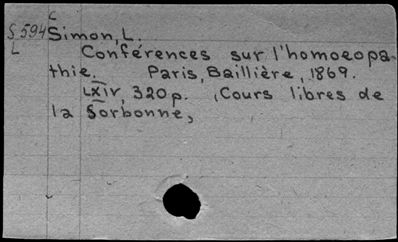 C
S594 Simon, L.
L Conférences sur l'homoeopa-
thie. Paris, Baillière, 1869.
LXIV, 320p. (Cours libres de
la Sorbonne,